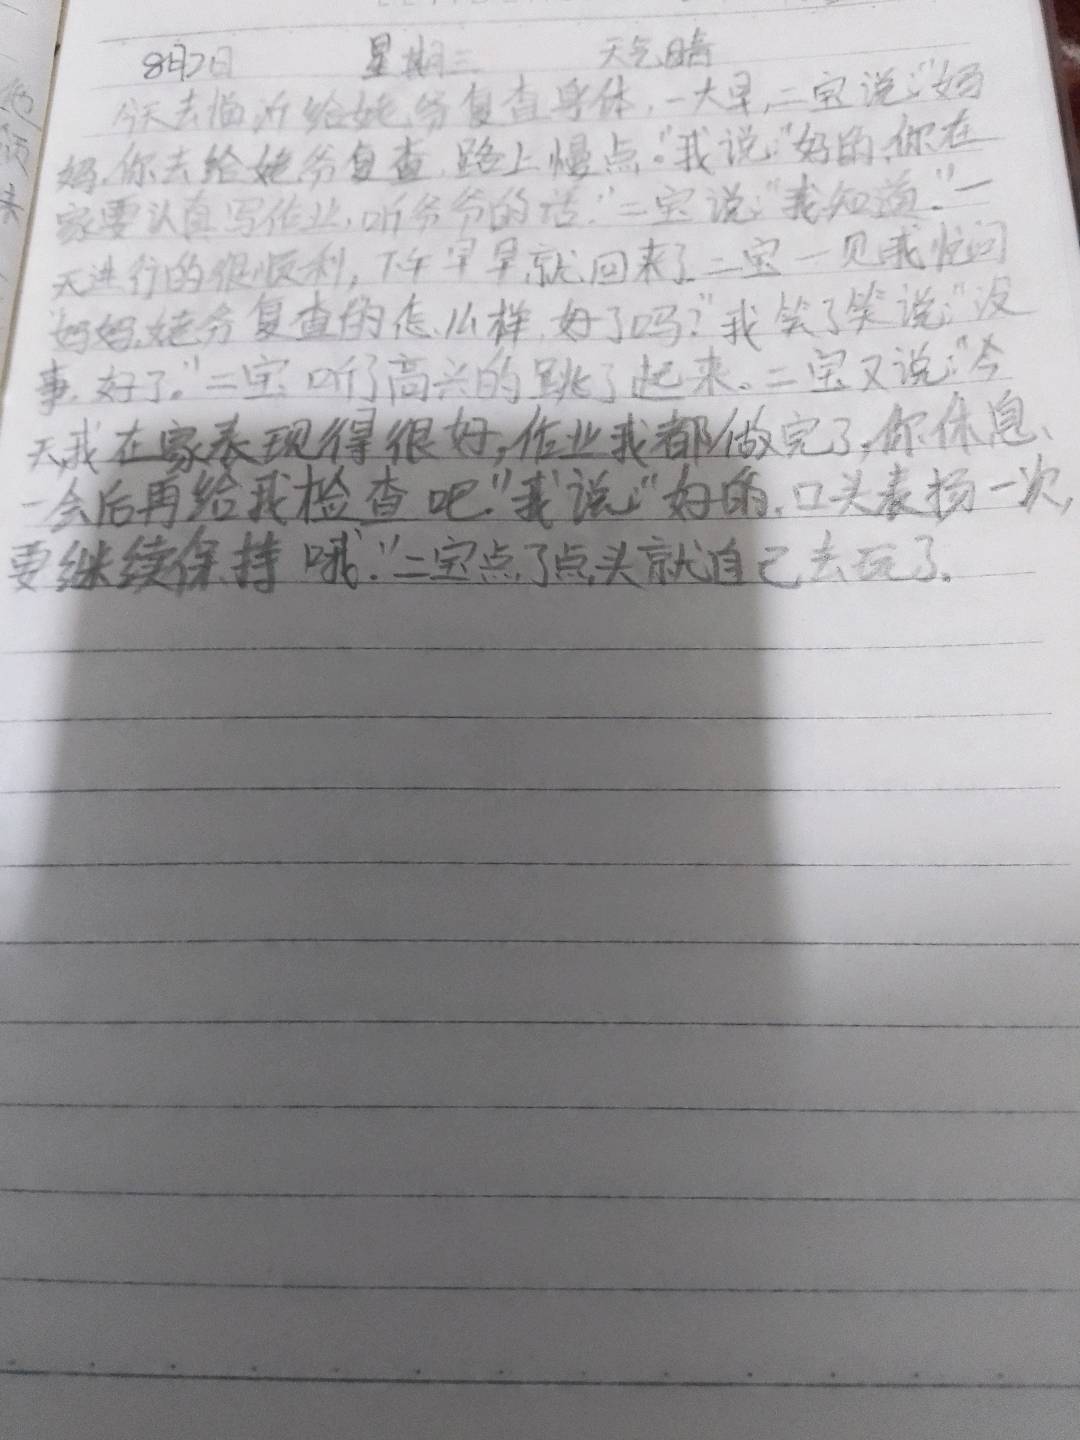 8月7日 星期三 天气晴
今天去临沂给姥爷复查身体,一大早,二宝说:"妈
妈,你去给姥爷复查,路上慢点。"我说:"好的,你在
家要认真写作业,听爷爷的话。"二宝说:"我知道。"一
天进行的很顺利,下午早早就回来了。二宝一见我忙问
妈妈,姥爷复查的怎么样,好了吗?"我笑了笑说:"没
事,好了。"二宝听了高兴的跳了起来。二宝又说:"今
天我在家表现得很好,作业我都做完了,你休息、
一会后再给我检查吧。"我说:"好的,口头表扬一次,
要继续保持哦。"二宝点了点头就自己去玩了。